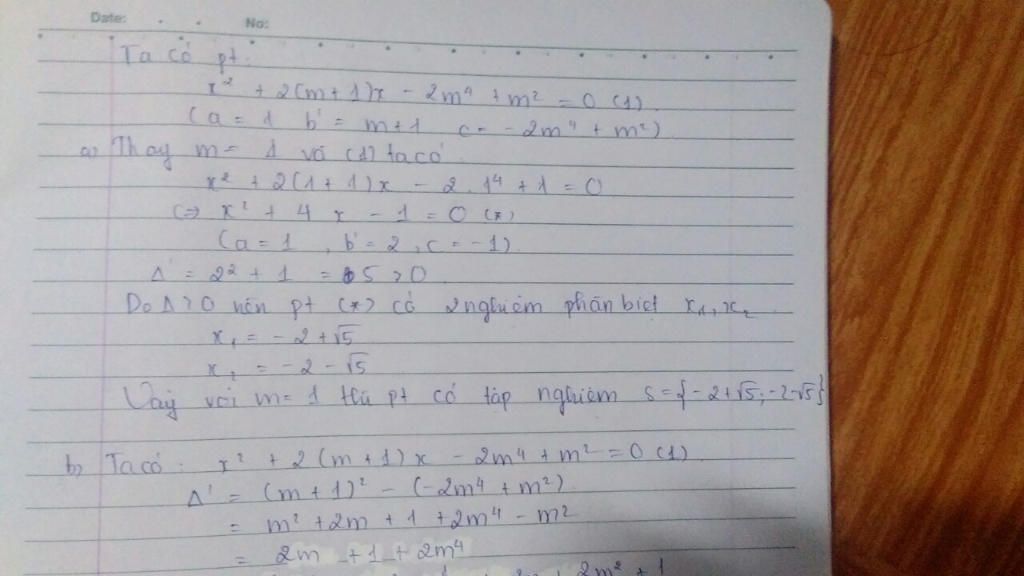 Date: No:
Ta có pt:
x² + 2(m+1)x - 2m⁴ + m² = 0 (1)
(a = 1 b' = m+1 c = -2m⁴ + m²)
a) Thay m = 1 vào (1) ta có
x² + 2(1+1)x - 2.1⁴ + 1 = 0
<=> x² + 4x - 1 = 0 (*)
(a = 1, b' = 2, c = -1)
Δ' = 2² + 1 = 5 > 0
Do Δ' > 0 nên pt (*) có 2 nghiệm phân biệt x₁, x₂
x₁ = -2 + √5
x₂ = -2 - √5
Vậy với m = 1 thì pt có tập nghiệm S = {-2+√5; -2-√5}
b) Ta có: x² + 2(m+1)x - 2m⁴ + m² = 0 (1)
Δ' = (m+1)² - (-2m⁴ + m²)
= m² + 2m + 1 + 2m⁴ - m²
= 2m + 1 + 2m⁴
2m² + 1